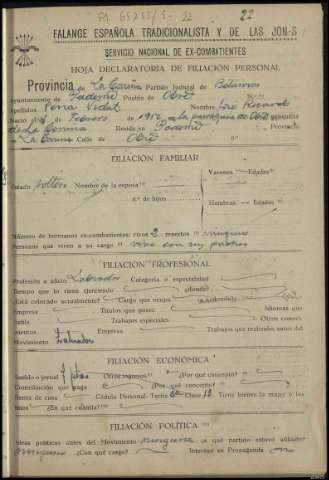 22
FALANGE ESPAÑOLA TRADICIONALISTA Y DE LAS JON-S
SERVICIO NACIONAL DE EX-COMBATIENTES
HOJA DECLARATORIA DE FILIACIÓN PERSONAL
Provincia de La Coruña Partido Judicial de Betanzos
Ayuntamiento de Paderne Pueblo de Obre
Apellidos Pena Vidal Nombre José Ricardo
Nació de Febrero de a la parroquia de Obre
de La Coruña Reside en Paderne Provincia
La Coruña Calle de Obre n.º
FILIACIÓN FAMILIAR
Varones —Edades
Estado soltero Nombre de la esposa
n.º de hijos
Hembras —Edades
Número de hermanos ex-combatientes: vivos 2 muertos ninguno
Personas que viven a su cargo vive con sus padres
FILIACIÓN PROFESIONAL
Profesión u oficio Labrador Categoría o especialidad
Tiempo que lo viene ejerciendo ¿dónde?
¿Está colocado actualmente? Cargo que ocupa
Empresa Títulos que posee Idiomas que
Trabajos especiales Otros conoci-
mientos Empresa Trabajos que realizaba antes del
Movimiento Labrador
FILIACIÓN ECONÓMICA
Sueldo o jornal 7 ptas Otros ingresos ¿Por qué concepto?
Contribución que paga ¿Por qué concepto?
Renta de casa Cédula Personal: Tarifa Clase 13 Tiene bienes la mujer o los
hijos ¿En qué cuantía?
FILIACIÓN POLÍTICA
Ideas políticas antes del Movimiento ninguna ¿a qué partido estuvo afiliado?
ninguno ¿Con qué cargo? Intervino en Propaganda no